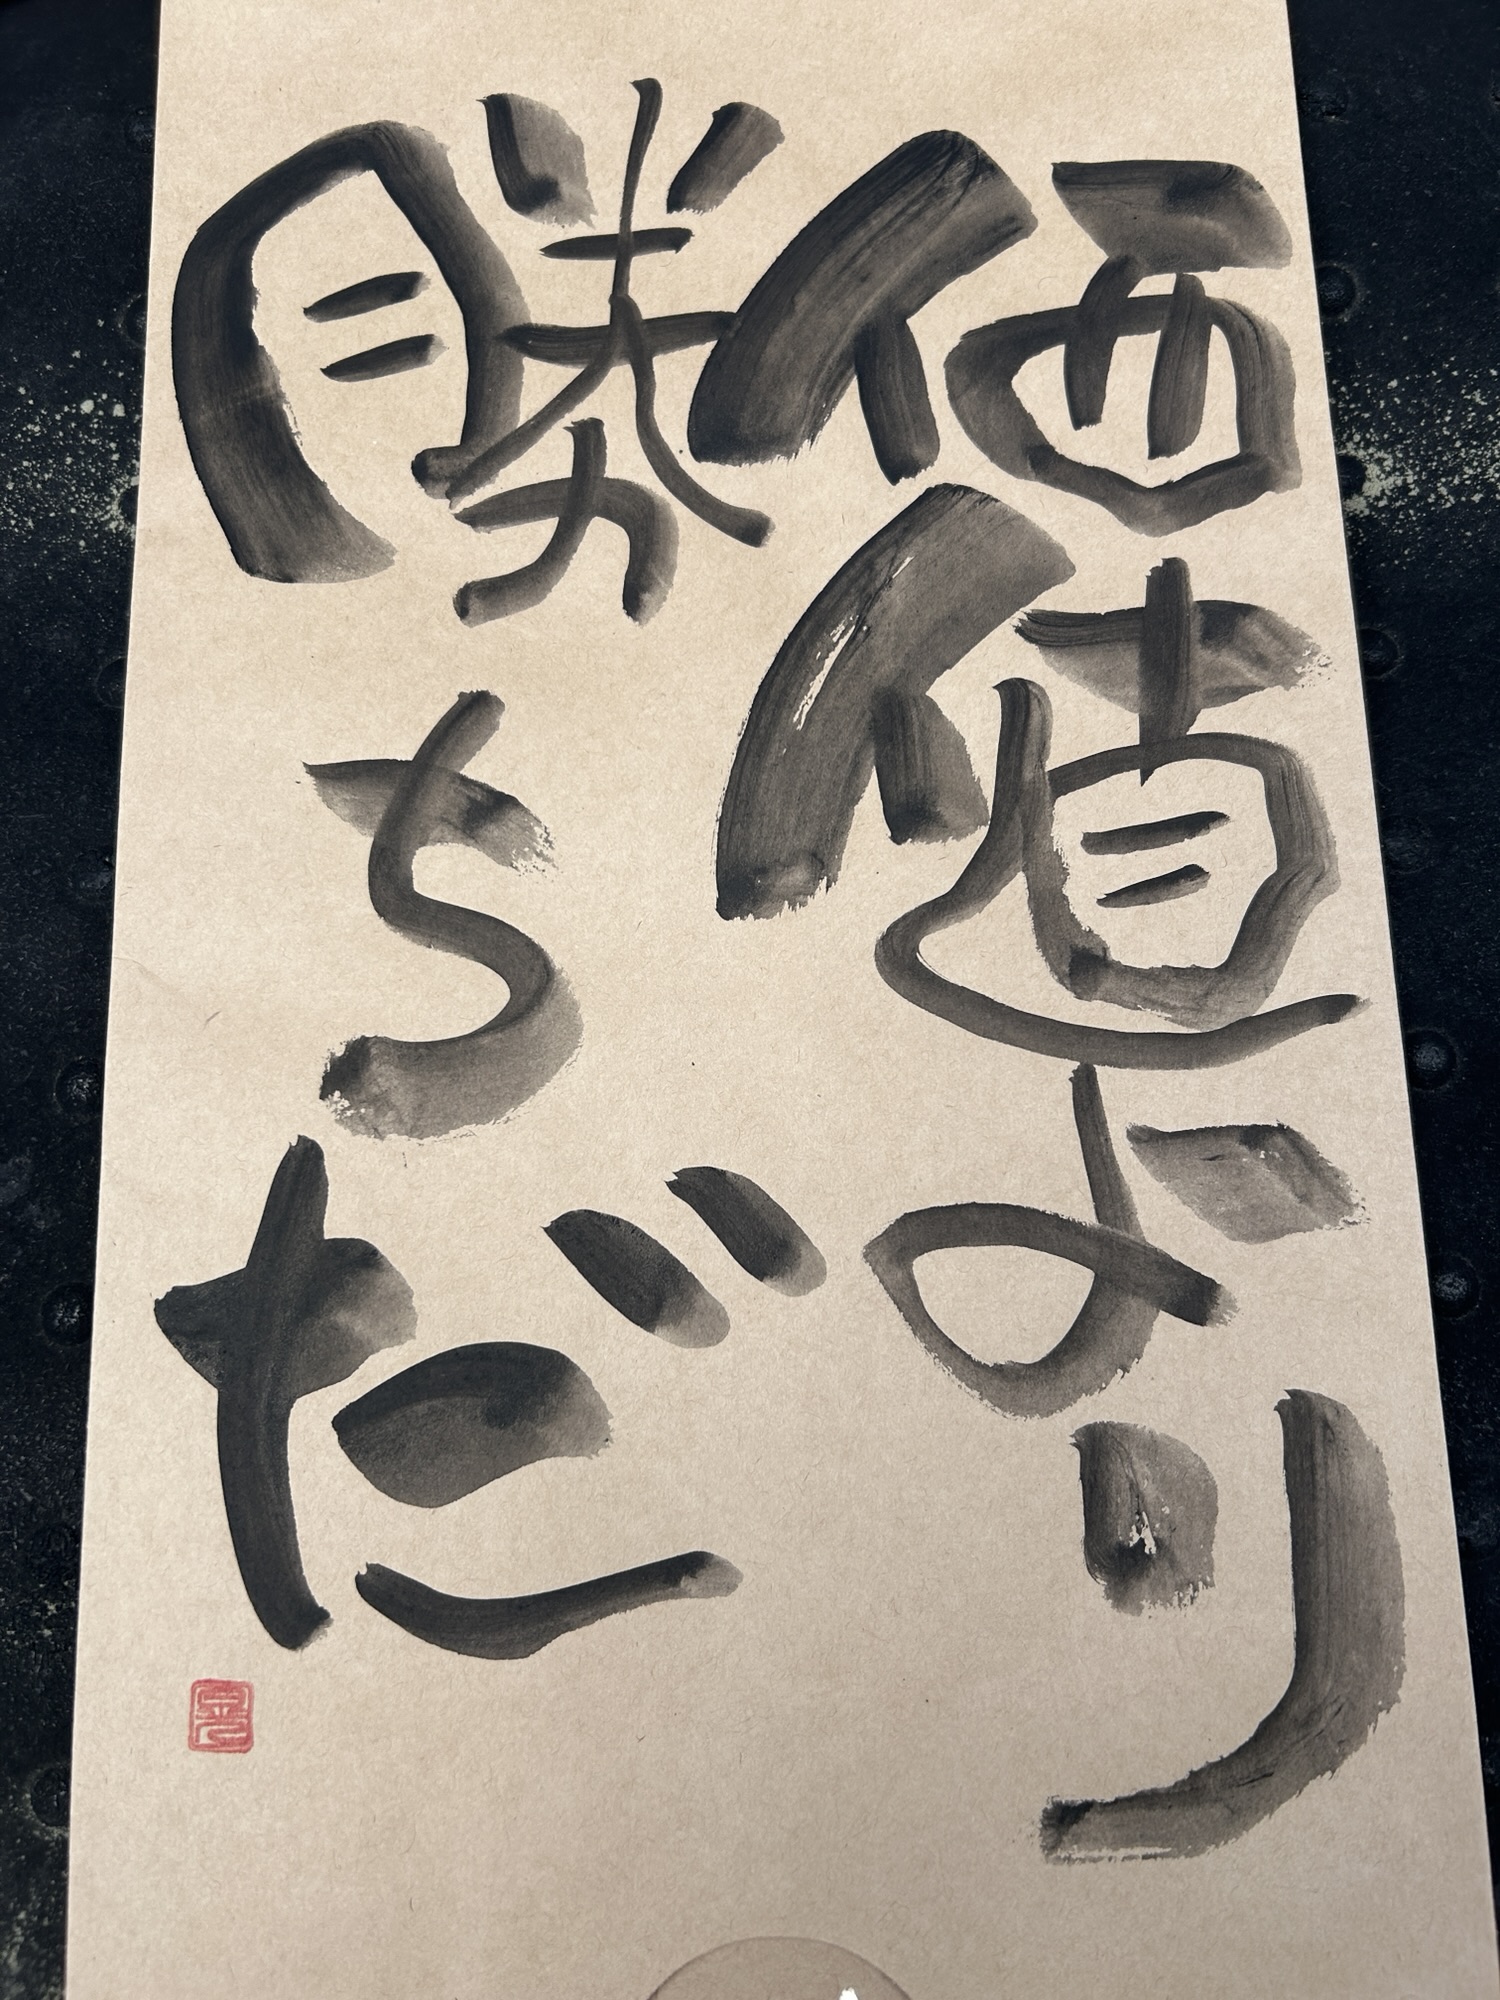 価値より
勝ちだ